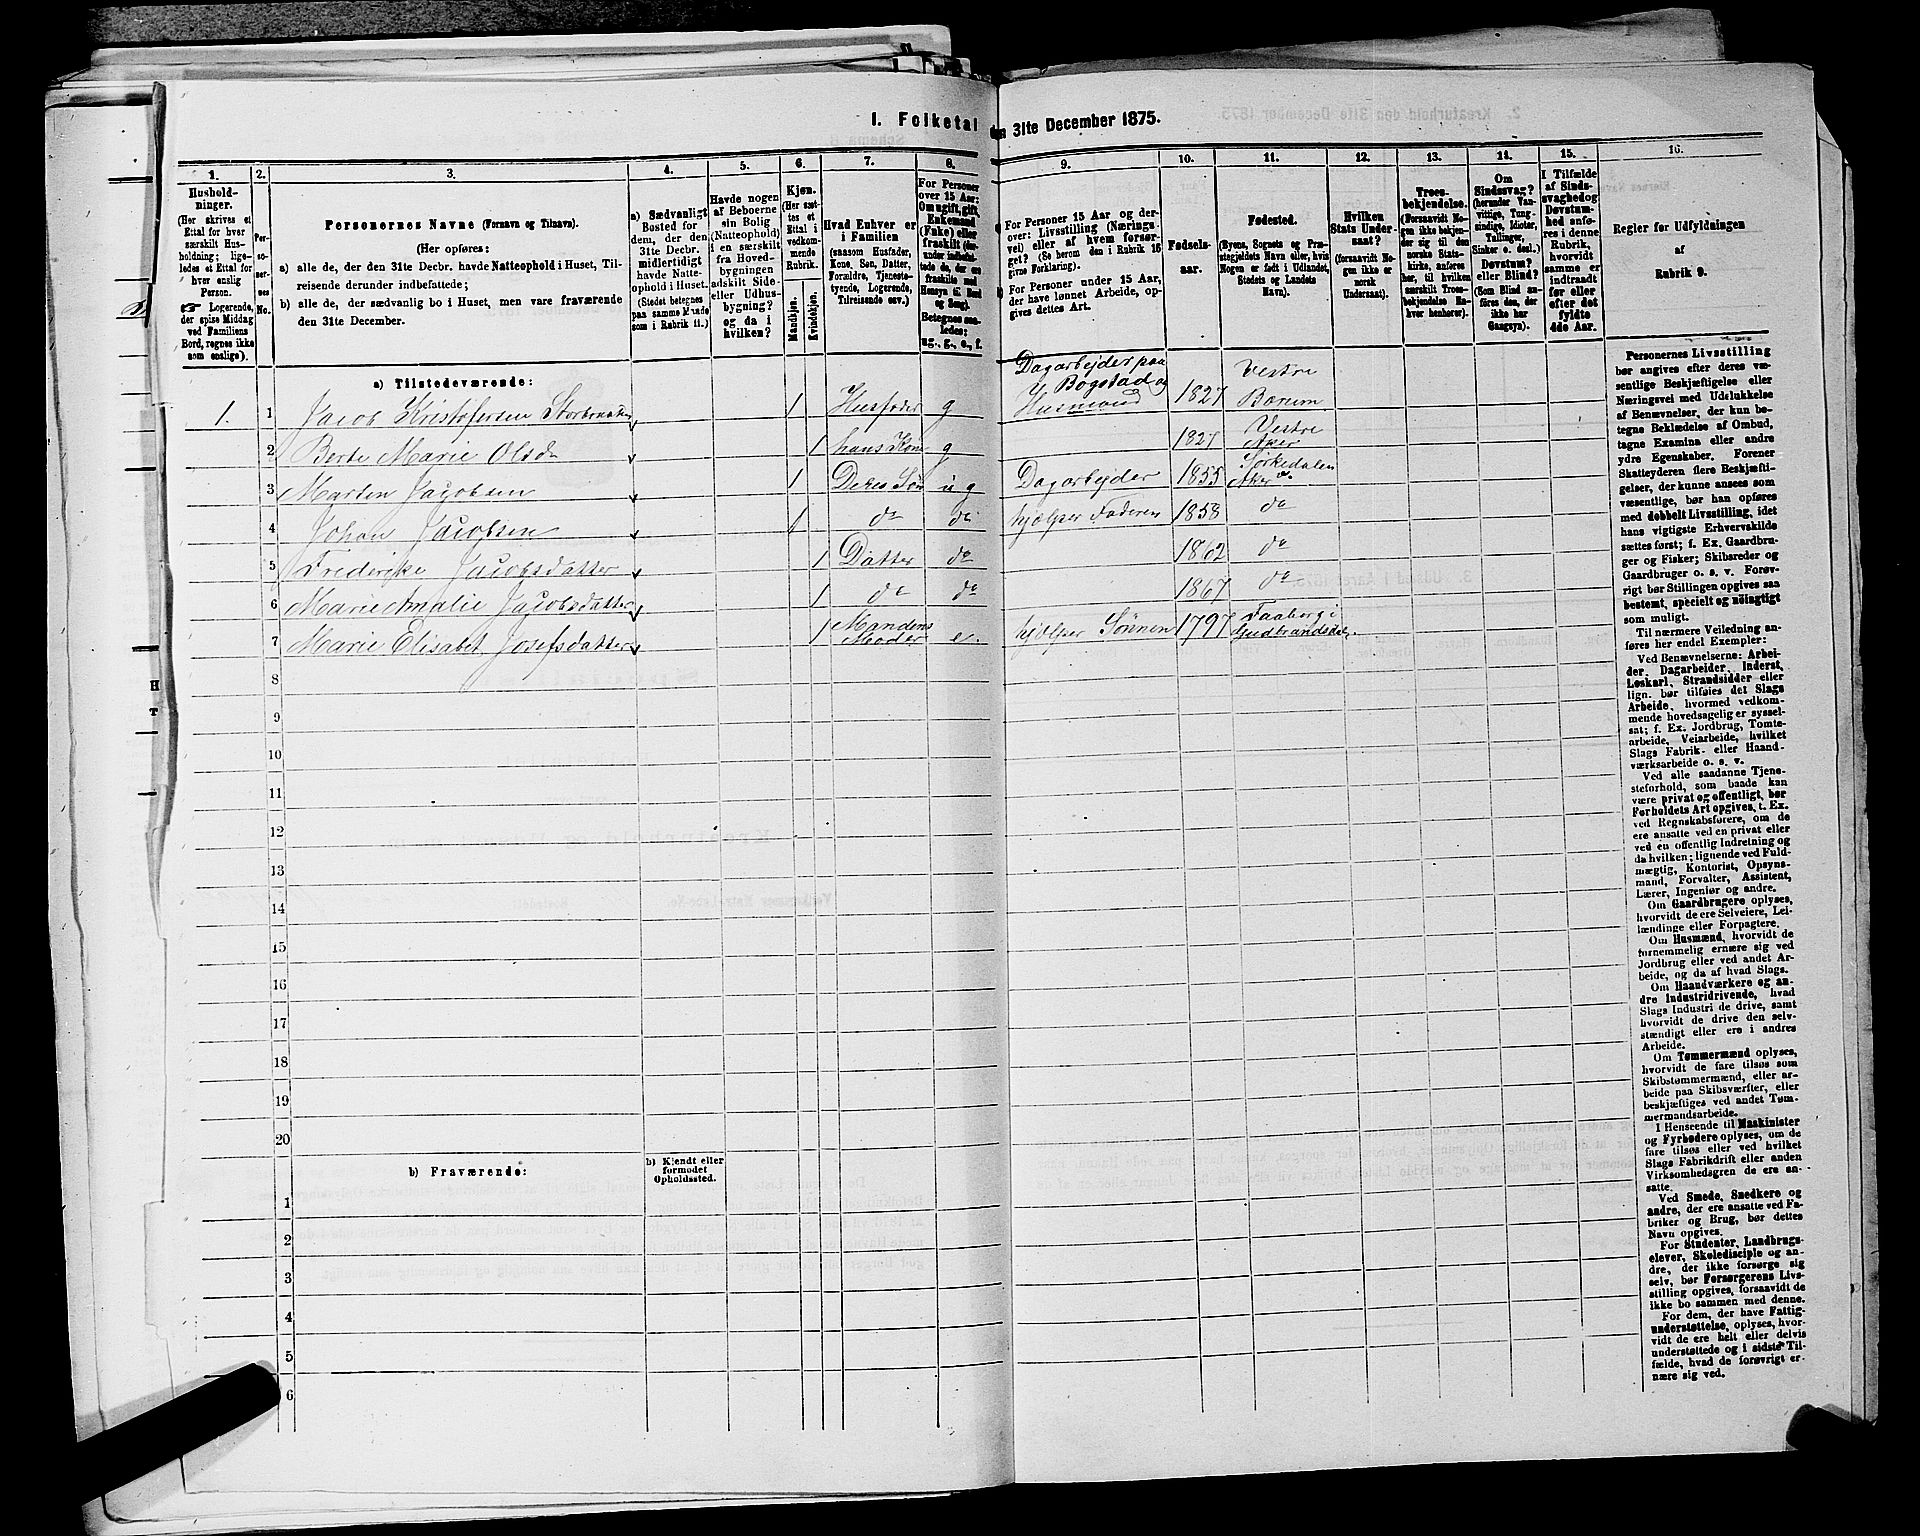 1. Folketal
den 31te December 1875.
1. 2. 3. 4. 5. 6. 7. 8. 9. 10. 11. 12. 13. 14. 15. 16.
Hushold-
ninger.
(Her skrives et
Ettal for hver
særskilt Hus-
holdning; lige-
ledes et Ettal for
hver enslig
Person.
☞ Logerende,
der spise Middag
ved Familiens
Bord, regnes ikke
som enslige).
Per-
so-
ner-
nes
No.
Personernes Navne (Fornavn og Tilnavn).
(Her opføres:
a) alle de, der den 31te Decbr. havde Natteophold i Huset, Til-
reisende derunder indbefattede;
b) alle de, der sædvanlig bo i Huset, men vare fraværende
den 31te December.
a) Sædvanligt
Bosted for
dem, der den
31te Decbr.
midlertidigt
havde Natte-
ophold i Huset.
(Stedet betegnes
paa samme Maade
som i Rubrik 11.)
Havde nogen
af Beboerne
sin Bolig
(Natteophold)
i en særskilt
fra Hoved-
bygningen
adskilt Side-
eller Udhus-
bygning?
og da i
hvilken?
Kjøn.
(Her sæt-
tes et
Ettal i
vedkom-
mende
Rubrik.
Mandkjøn.
Kvindekjøn.
Hvad Enhver er
i Familien
(saasom Husfader,
Kone, Søn, Datter,
Forældre, Tjeneste-
tyende, Logerende,
Tilreisende osv.)
For Personer
over 15 Aar:
Om ugift, gift,
Enkemand
(Enke) eller
fraskilt (der-
under indbefat-
tede de, der ere
fraskilte med
Hensyn til Bord
og Seng).
Betegnes saa-
ledes:
ug., g., e., f.
For Personer 15 Aar og der-
over: Livsstilling (Nærings-
vei) eller af hvem forsør-
get? (Se herom den i Rubrik 16
givne Forklaring).
For Personer under 15 Aar,
der have lønnet Arbeide, op-
gives dettes Art.
Fødsels-
aar.
Fødested.
(Byens, Sognets og Præ-
stegjeldets Navn eller, hvis
Nogen er født i Udlandet,
Stedets og Landets
Navn).
Hvilken
Stats Under-
saat?
(forsaavidt No-
gen ikke er
norsk
Undersaat).
Troes-
bekjendelse.
(Forsaavidt No-
gen ikke bekjen-
der sig til den
norske Stats-
kirke, anføres
her, til hvilken
særskilt Troes-
bekjendelse En-
hver henhører).
Om
Sindssvag?
(herunder Van-
vittige, Tung-
sindige, Idioter,
Tullinger,
Sinker o. desl.)
Døvstum?
eller Blind?
(Som Blind an-
føres den, der
ikke har
Gangsyn).
I Tilfælde
af Sinds-
svaghed og
Døvstum-
hed anfø-
res i denne
Rubrik,
hvorvidt
samme er
indtraadt
før eller
efter det
fyldte
4de Aar.
Regler for Udfyldningen
af
Rubrik 9.
a) Tilstedeværende:
1. 1 Jacob Kristofersen Storbraaten 1 Husfader g Dagarbejder paa Bogstad og Husmand 1827 Vestre Bærum
2 Berte Marie Olsd 1 hans Kone g 1827 Vestre Aker
3 Marten Jacobsen 1 Deres Søn ug Dagarbejder 1855 Sørkedalen Aker
4 Johan Jacobsen 1 do do hjælper Faderen 1858 do
5 Frederikke Jacobsdatter 1 Datter do 1862 do
6 Marie Amalie Jacobsdatter 1 do do 1867 do
7 Marie Elisabet Josefsdatter 1 Mandens Moder e. hjælper Sønnen 1797 Faaberg i Gudbrandsdal.
8
9
10
11
12
13
14
15
16
17
18
19
20
b) Fraværende:
b) Kjendt eller
formodet
Opholdssted.
1
2
3
4
5
6
Personernes Livsstilling
bør angives efter deres væ-
sentlige Beskjæftigelse eller
Næringsvei med Udelukkelse
af Benævnelser, der kun be-
tegne Beklædelse af Ombud,
tagne Examina eller andre
ydre Egenskaber. Forener
Skatteyderen flere Beskjæfti-
gelser, der kunne ansees som
væsentlige, bør han opføres
med dobbelt Livsstilling, idet
hans vigtigste Erhvervskilde
sættes først; f. Ex. Gaardbru-
ger og Fisker; Skibsreder og
Gaardbruger o. s. v. Forøv-
rigt bør Stillingen opgives saa
bestemt, specielt og nøiagtigt
som muligt.
Til nærmere Veiledning an-
føres her endel Exempler:
Ved Benævnelserne: Arbei-
der, Dagarbeider, Inderst,
Løskarl, Strandsidder eller
lign. bør tilføies det Slags
Arbeide, hvormed vedkom-
mende hovedsagelig er syssel-
sat; f. Ex. Jordbrug, Tomte-
arbeide, Veiarbeide, hvilket
Slags Fabrik- eller Haand-
værksarbeide o. s. v.
Ved alle saadanne Tjene-
steforhold, som baade kan
være privat og offentligt, bør
Forholdets Art opgives, t. Ex.
ved Regnskabsførere, om de
ere ansatte ved en privat eller
ved en offentlig Indretning og
da hvilken; lignende ved Fuld-
mægtig, Kontorist, Opsyns-
mand, Forvalter, Assistent,
Lærer, Ingeniør og andre.
Om Gaardbrugere oplyses,
hvorvidt de ere Selveiere, Lei-
lændinge eller Forpagtere.
Om Husmænd, hvorvidt de
fornemmelig ernære sig ved
Jordbrug eller ved andet Ar-
beide, og da af hvad Slags.
Om Haandværkere og an-
dre Industridrivende, hvad
Slags Industri de drive, samt
hvorvidt de drive den selv-
stændigt eller ere i andres
Arbeide.
Om Tømmermænd oplyses,
hvorvidt de fare tilsøs som
Skibstømmermænd, eller ar-
beide paa Skibsværfter, eller
beskjæftiges ved andet Tøm-
mermandsarbeide.
I Henseende til Maskinister
og Fyrbødere oplyses, om de
fare tilsøs eller ved hvilket
Slags Fabrikdrift eller anden
Virksomhedsgren de ere an-
satte.
Ved Smede, Snedkere og
andre, der ere ansatte ved Fa-
briker og Brug, bør dettes
Navn opgives.
For Studenter, Landbrugs-
elever, Skoledisciple og an-
dre, der ikke forsørge sig
selv, bør Forsørgerens Livs-
stilling opgives, forsaavidt de
ikke bo sammen med denne.
For dem, der have Fattig-
understøttelse, oplyses, hvor-
vidt de ere helt eller delvis
understøttede og i sidste Til-
fælde, hvad de forøvrigt er-
nære sig ved.